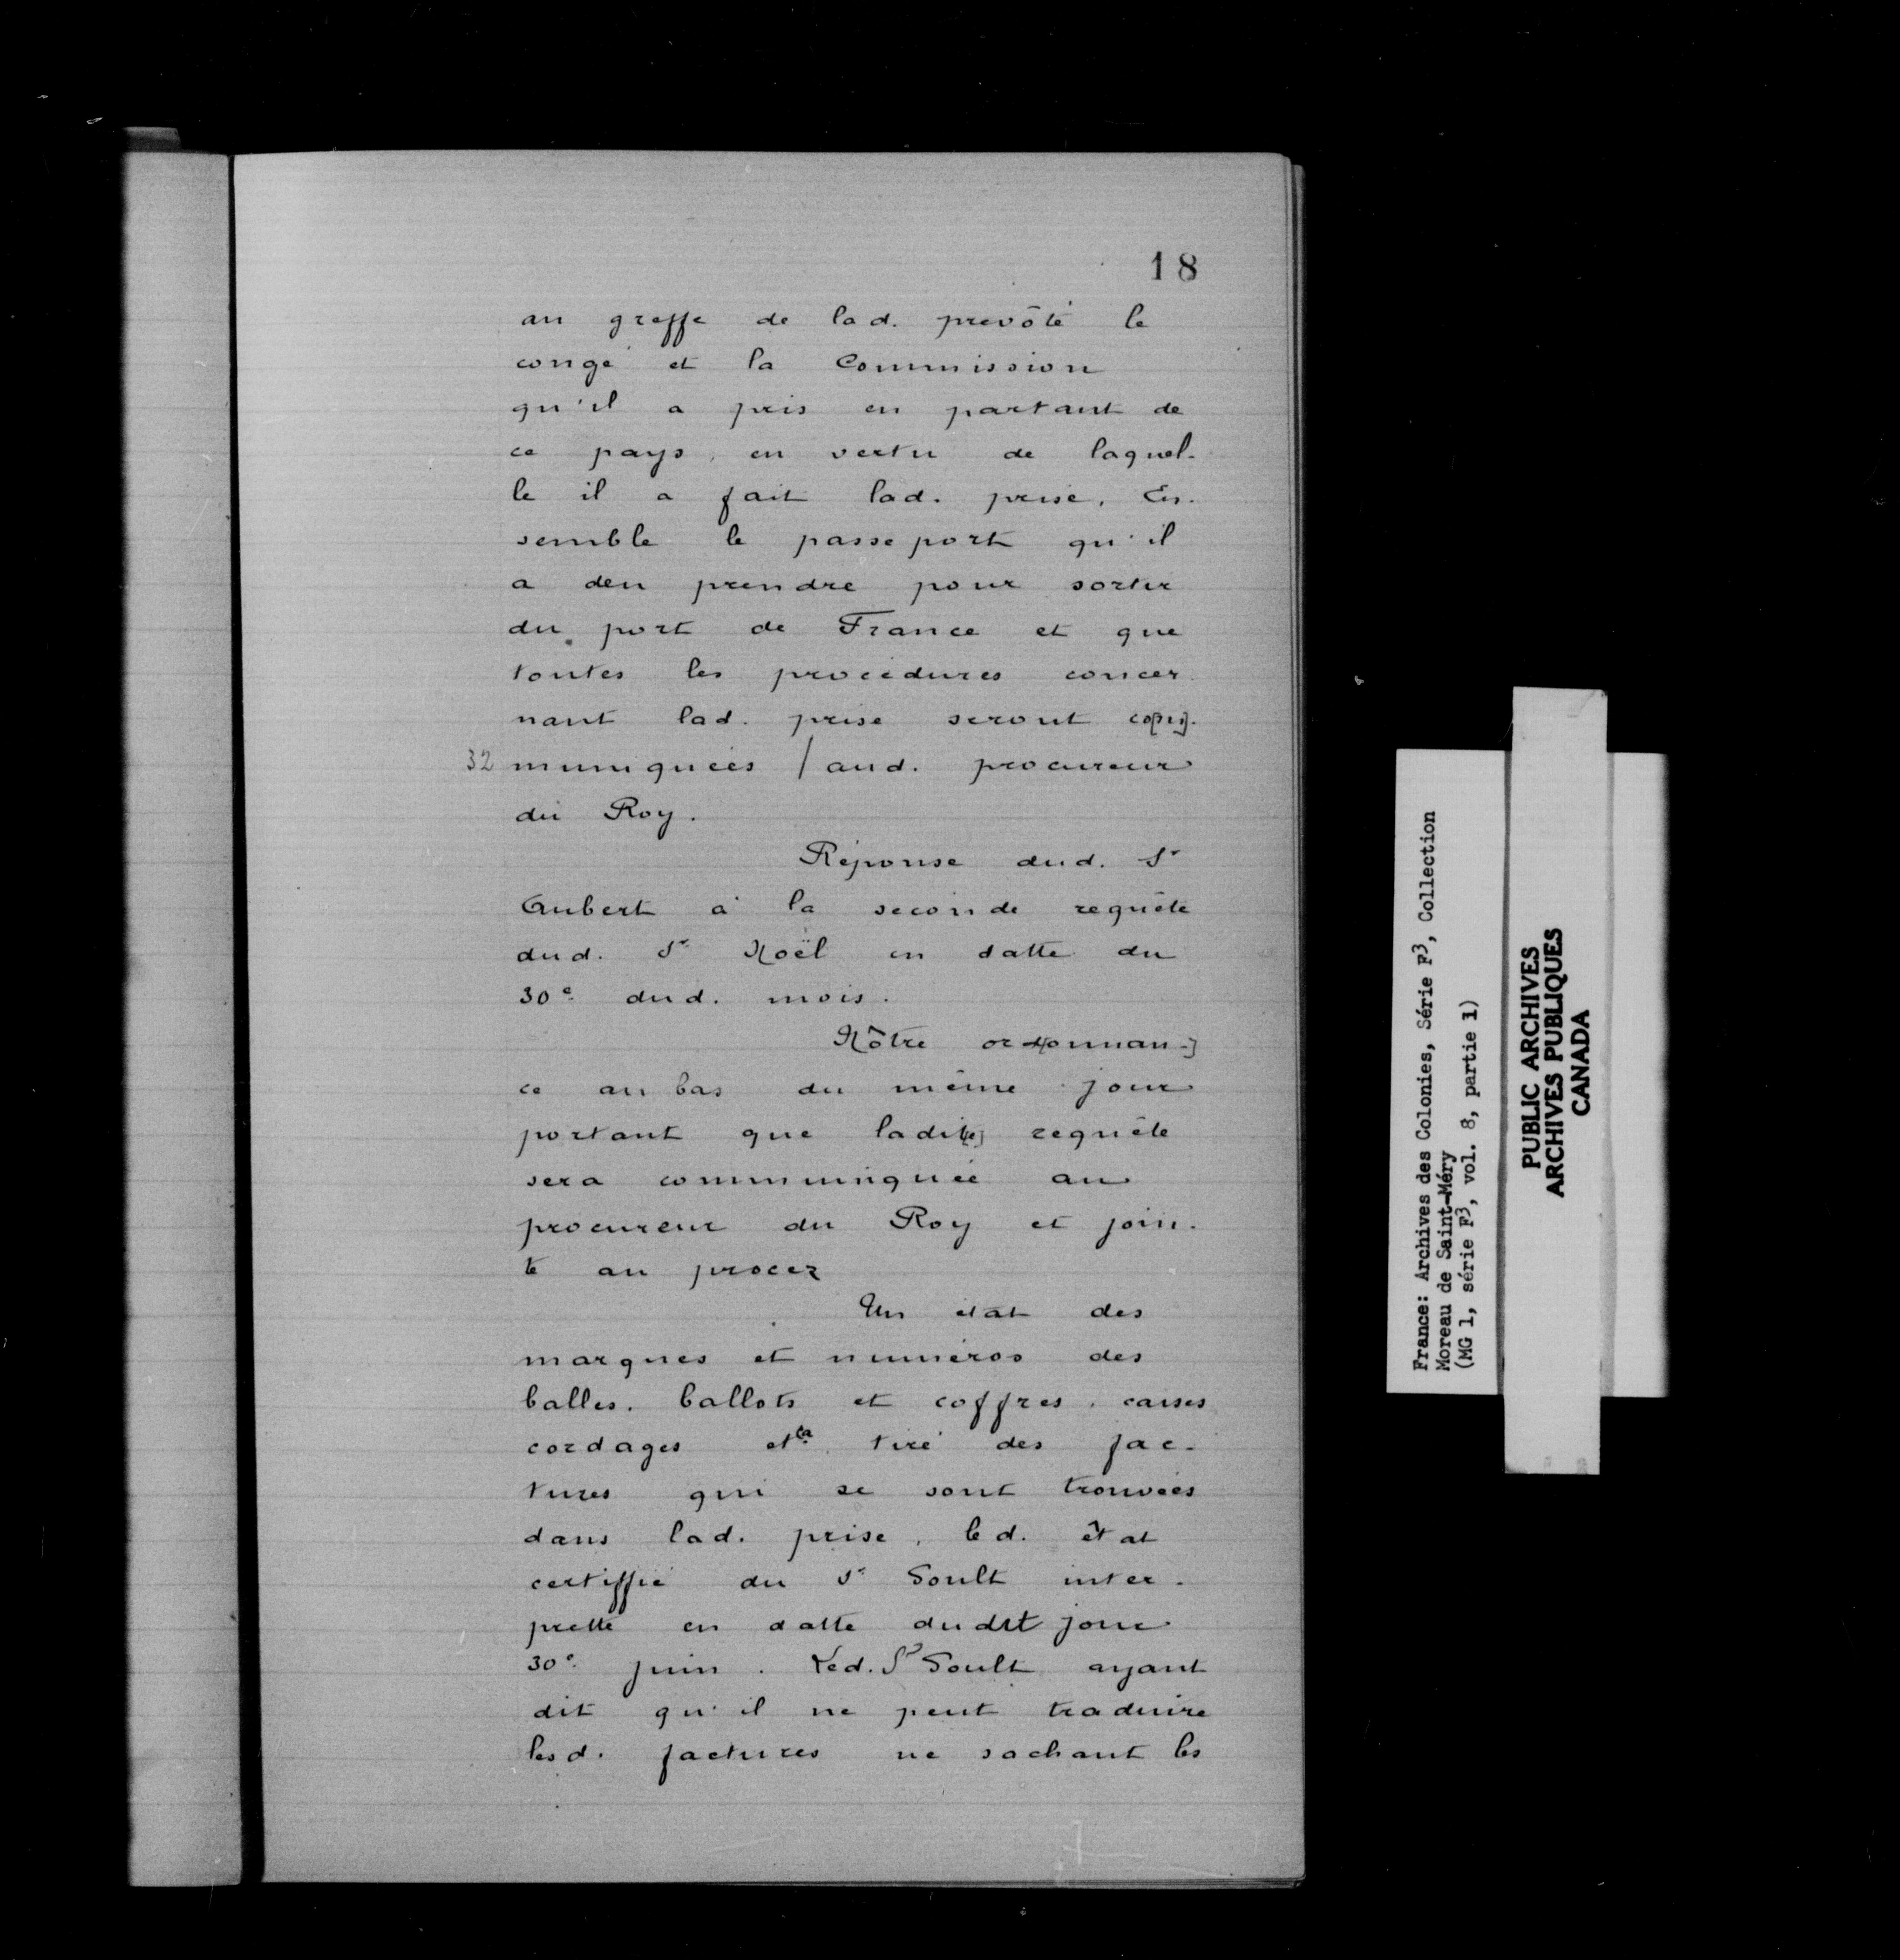 18
au greffe de lad. prevôté le
congé et la Commission
qu'il a pris en partant de
ce pays, en vertu de laquel-
le il a fait lad. prise. En-
semble le passeport qu'il
a deu prendre pour sortir
du port de France et que
toutes les procédures concer-
nant lad. prise seront com-
32 muniquées / aud. procureur
du Roy.
Réponse dud. Sr
Aubert à la seconde requête
dud. Sr Noël en datte du
30e dud. mois.
Nôtre ordonnan-
ce au bas du même jour
portant que ladit[e] requête
sera communiquée au
procureur du Roy et join-
te au procez
Un état des
marques et numéros des
balles, ballots et coffres, caises
cordages etca tiré des fac-
tures qui se sont trouvées
dans lad. prise, led. êtat
certiffié du Sr Soult inter-
prette en datte dudit jour
30e juin. Led. Sr Soult ayant
dit qu'il ne peut traduire
lesd. factures ne sachant les
France: Archives des Colonies, Série F3, Collection
Moreau de Saint-Méry
(MG 1, série F3, vol. 8, partie 1)
PUBLIC ARCHIVES
ARCHIVES PUBLIQUES
CANADA